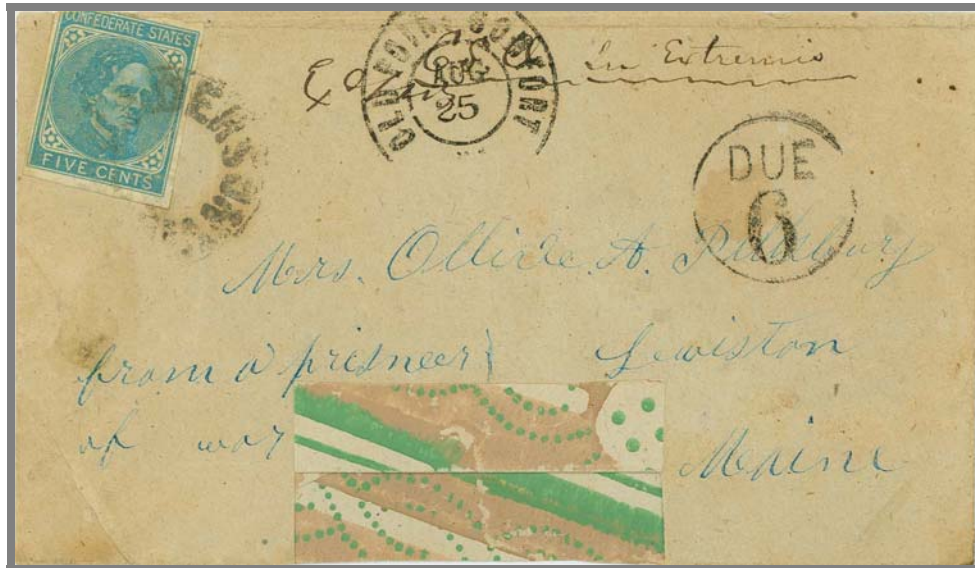 CONFEDERATE STATES
FIVE CENTS
OLD POINT COMFORT
AUG
25
In Extremis
DUE
6
Mrs. Ollivde. A. Pillsbury
from a prisneer
Lewiston
of war
Maine